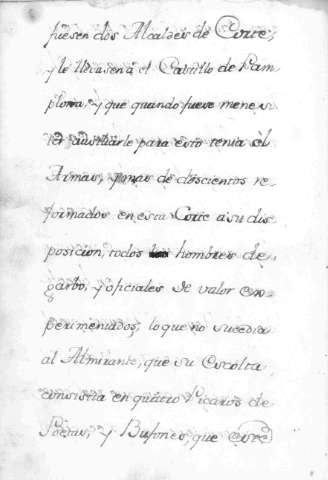 fuesen dos Alcaldes de Corte,
y le llevasen a el Castillo de Pam
plona, y que quando fuese menes
ter auxiliarle para esto tenia el
Armas, y mas de doscientos re
formados en esta Corte a su dis
posicion, todos hombres de
garbo, y oficiales de valor ex
perimentados, lo que no sucedia
al Almirante, que su escolta
consistia en quatro Picaros de
Poetas, y Bufones, que este